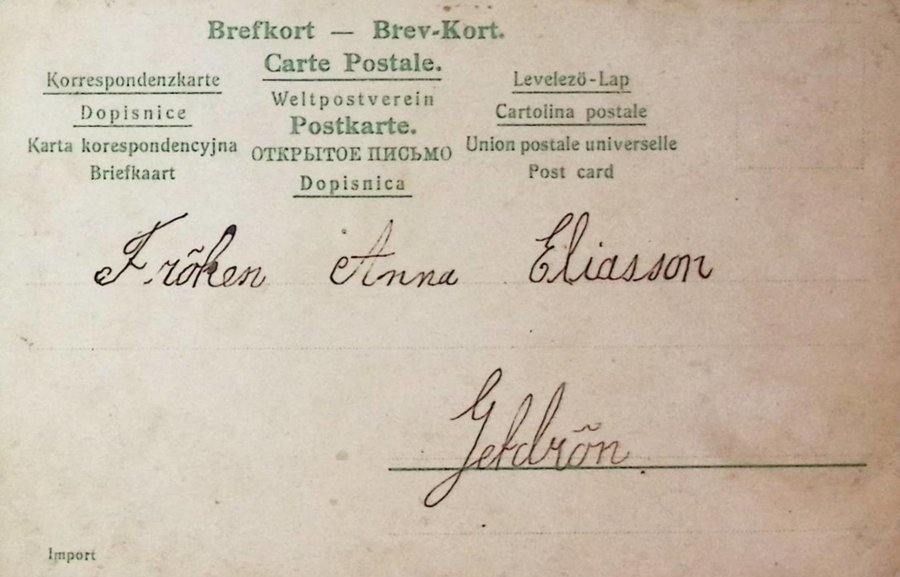 Brefkort — Brev-Kort.
Carte Postale.
Korrespondenzkarte
Weltpostverein
Levelező-Lap
Dopisnice
Postkarte.
Cartolina postale
Karta korespondencyjna
ОТКРЫТОЕ ПИСЬМО
Union postale universelle
Briefkaart
Dopisnica
Post card
Fröken Anna Eliasson
Import